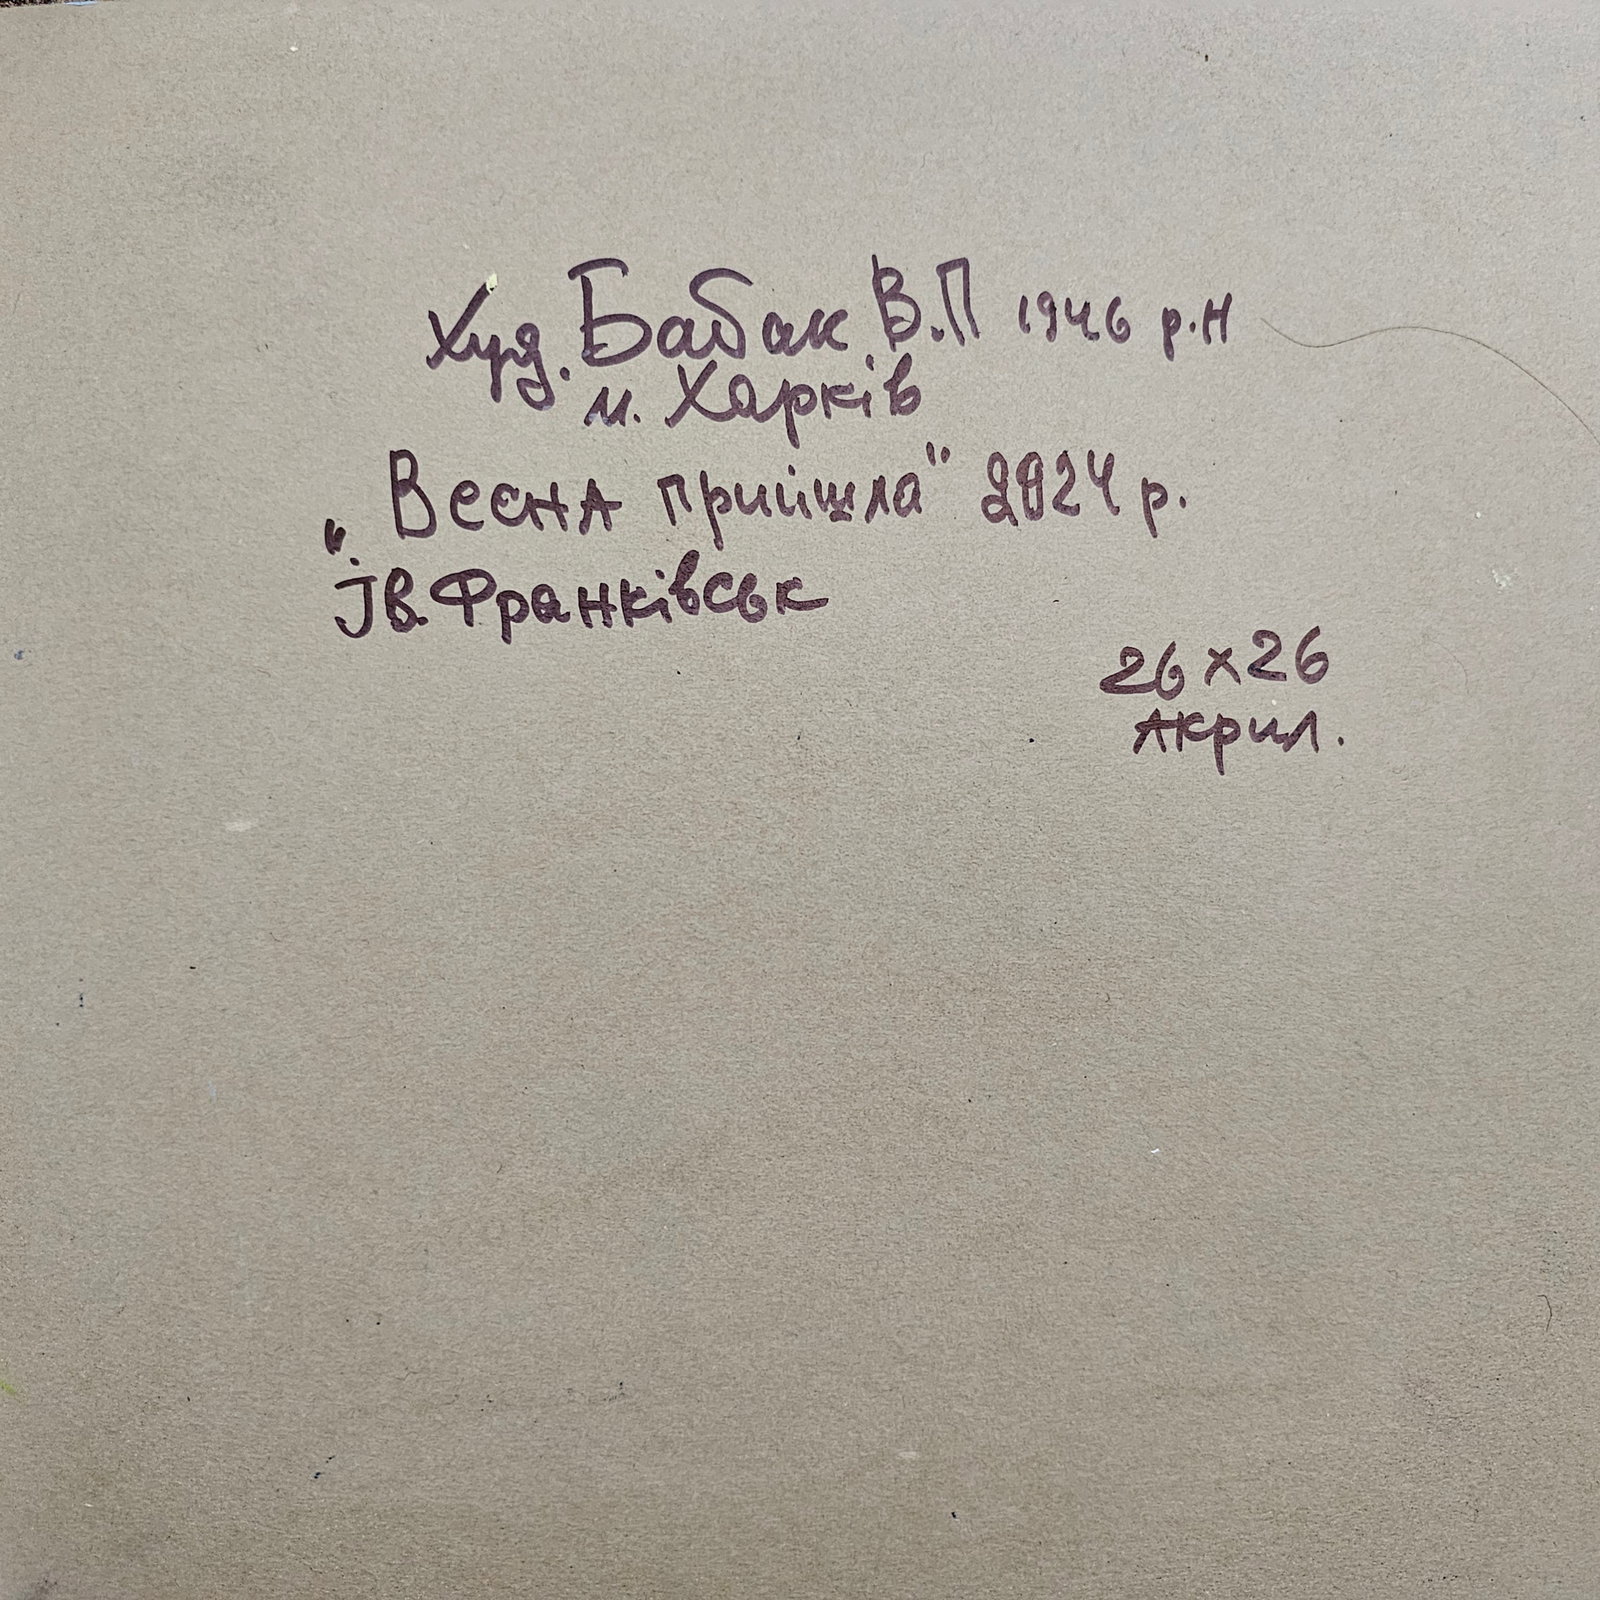 Худ. Бабак В.П 1946 р.н
м. Харків
"Весна прийшла" 2024 р.
Ів. Франківськ
26 x 26
Акрил.